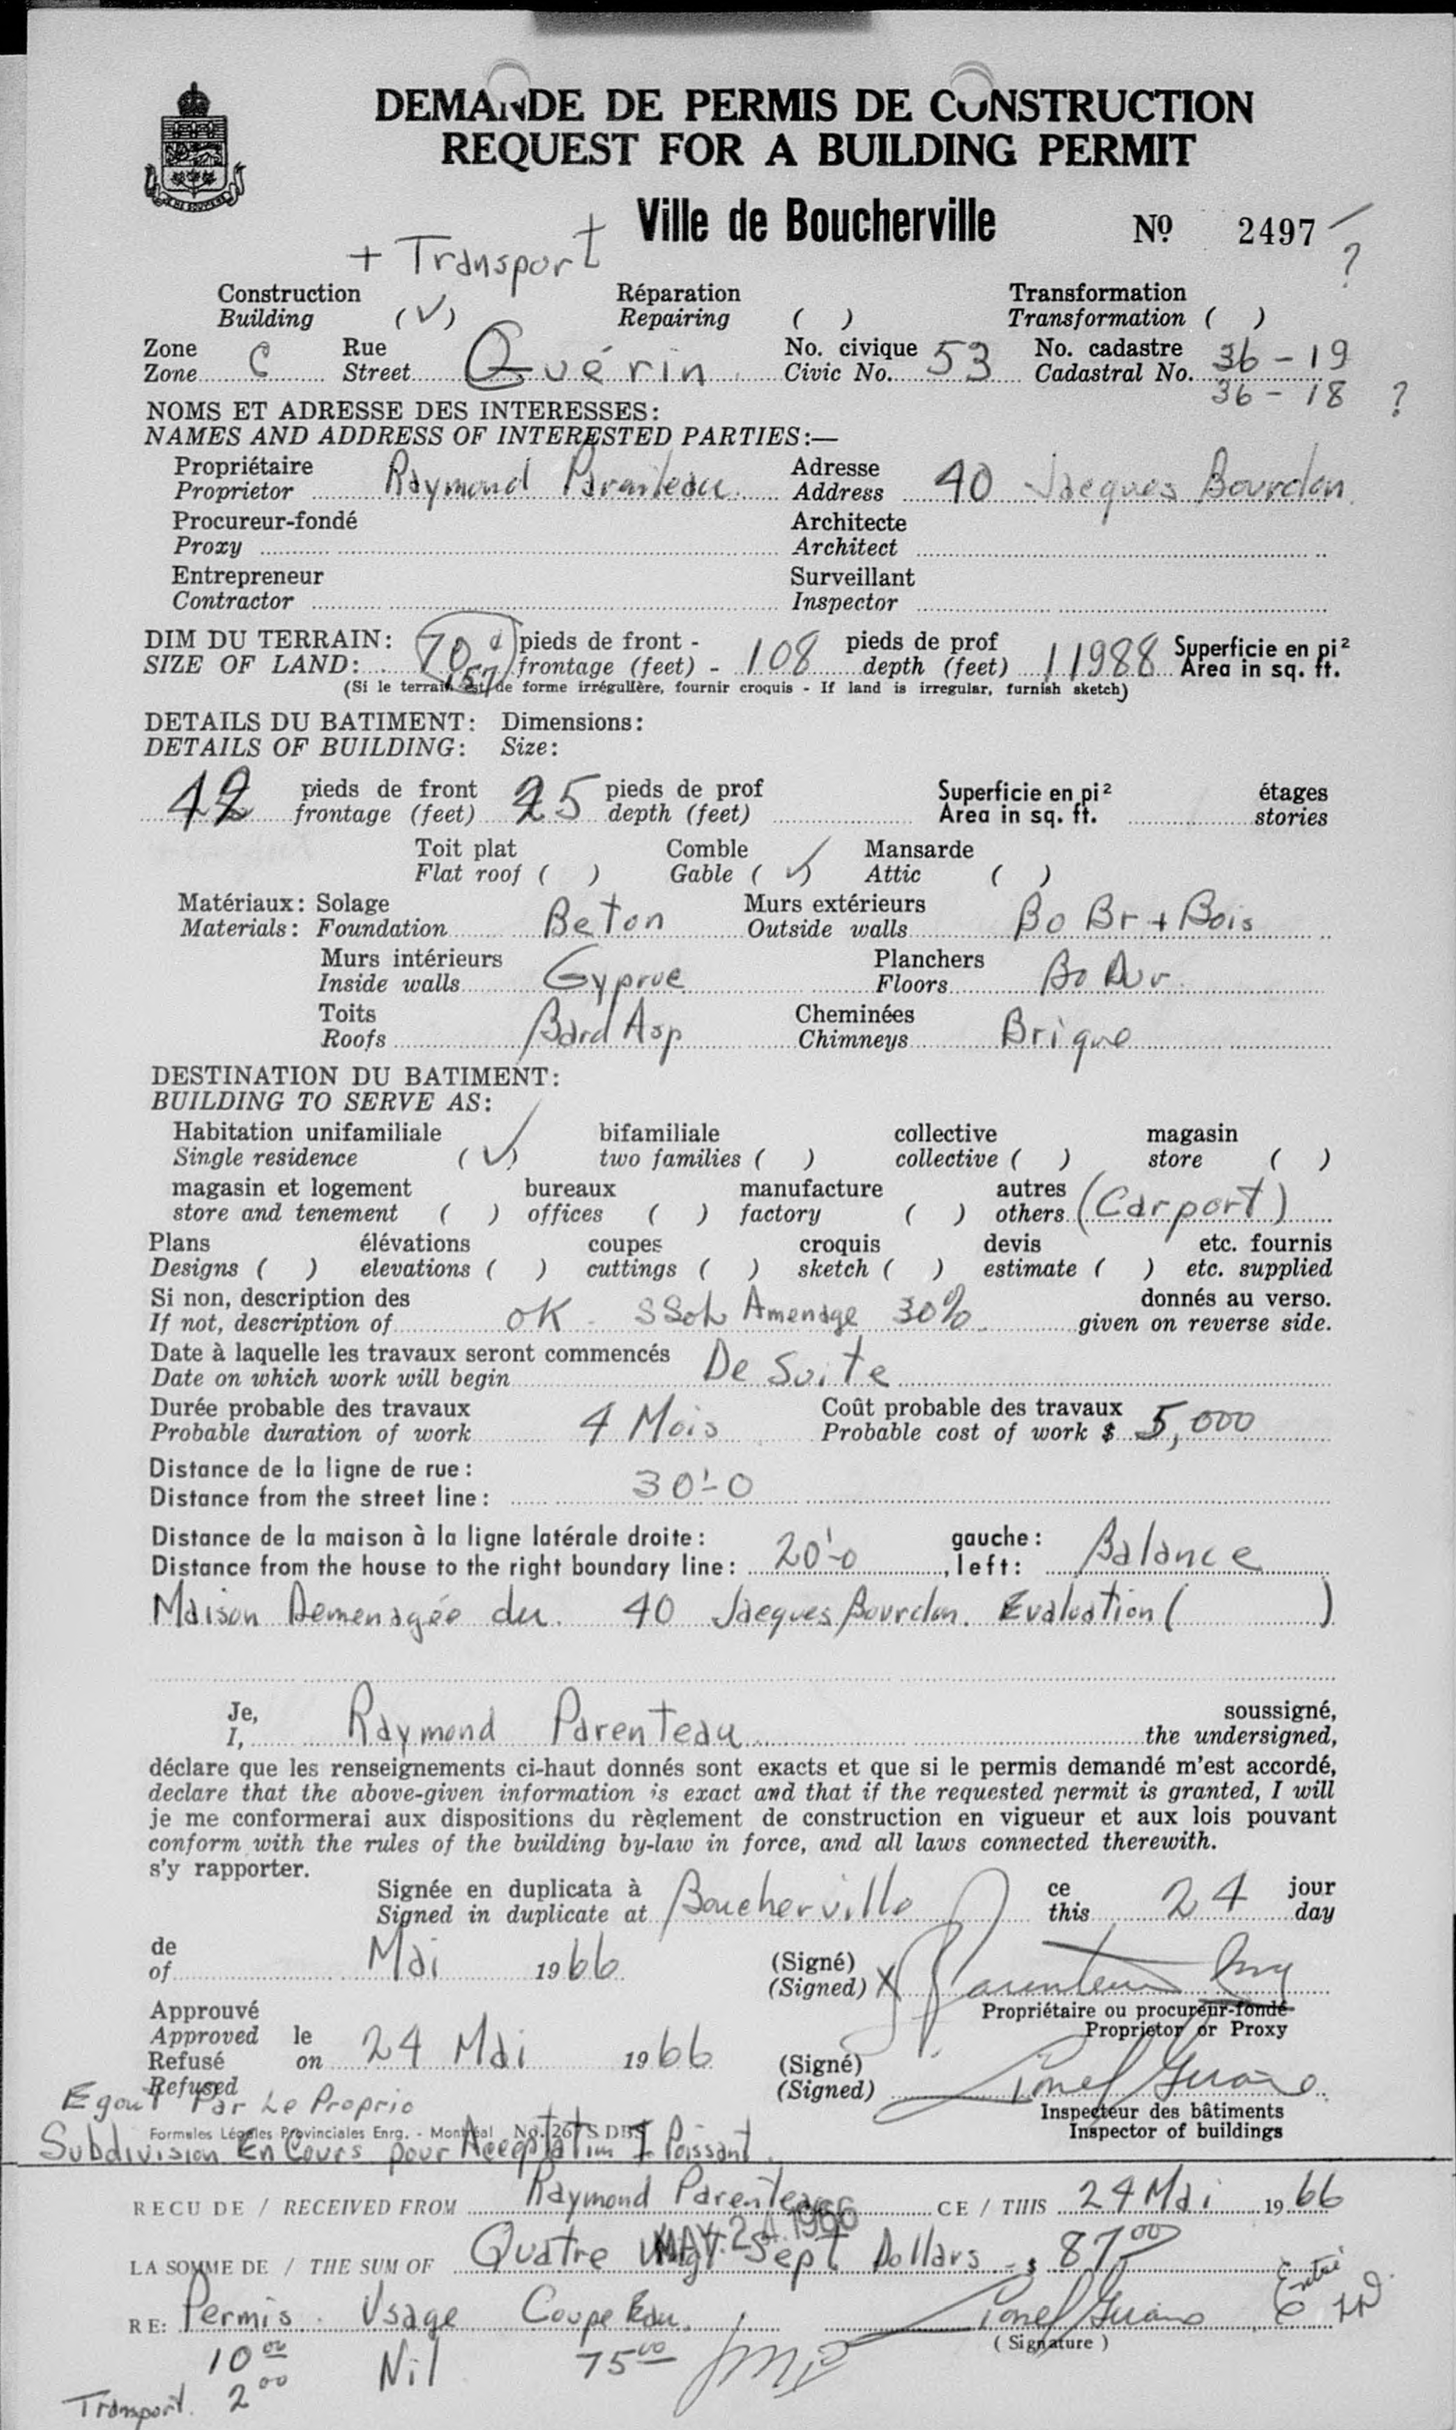 DEMANDE DE PERMIS DE CONSTRUCTION
REQUEST FOR A BUILDING PERMIT
Ville de Boucherville Nº 2497
?
+ Transport
Construction Réparation Transformation
Building (✓) Repairing ( ) Transformation ( )
Zone Rue No. civique No. cadastre
Zone C Street Guérin Civic No. 53 Cadastral No. 36-19
36-18 ?
NOMS ET ADRESSE DES INTERESSES:
NAMES AND ADDRESS OF INTERESTED PARTIES:—
Propriétaire Adresse
Proprietor Raymond Parenteau Address 40 Jacques Bourdon
Procureur-fondé Architecte
Proxy Architect
Entrepreneur Surveillant
Contractor Inspector
DIM DU TERRAIN: 70 pieds de front - 108 pieds de prof 11988 Superficie en pi²
SIZE OF LAND: 157 frontage (feet) - depth (feet) Area in sq. ft.
(Si le terrain est de forme irrégulière, fournir croquis - If land is irregular, furnish sketch)
DETAILS DU BATIMENT: Dimensions:
DETAILS OF BUILDING: Size:
42 pieds de front 25 pieds de prof Superficie en pi² étages
frontage (feet) depth (feet) Area in sq. ft. stories
Toit plat Comble Mansarde
Flat roof ( ) Gable (✓) Attic ( )
Matériaux: Solage Murs extérieurs
Materials: Foundation Beton Outside walls Bo Br + Bois
Murs intérieurs Planchers
Inside walls Gyproc Floors Bo Dur
Toits Cheminées
Roofs Bard Asp Chimneys Brique
DESTINATION DU BATIMENT:
BUILDING TO SERVE AS:
Habitation unifamiliale bifamiliale collective magasin
Single residence (✓) two families ( ) collective ( ) store ( )
magasin et logement bureaux manufacture autres
store and tenement ( ) offices ( ) factory ( ) others (Carport)
Plans élévations coupes croquis devis etc. fournis
Designs ( ) elevations ( ) cuttings ( ) sketch ( ) estimate ( ) etc. supplied
Si non, description des donnés au verso.
If not, description of OK SSol Amenage 30% given on reverse side.
Date à laquelle les travaux seront commencés
Date on which work will begin De Suite
Durée probable des travaux Coût probable des travaux
Probable duration of work 4 Mois Probable cost of work $ 5,000
Distance de la ligne de rue:
Distance from the street line: 30'-0
Distance de la maison à la ligne latérale droite: gauche:
Distance from the house to the right boundary line: 20'-0, left: Balance
Maison Demenagée du. 40 Jacques Bourdon. Evaluation ( )
Je, soussigné,
I, Raymond Parenteau the undersigned,
déclare que les renseignements ci-haut donnés sont exacts et que si le permis demandé m'est accordé,
declare that the above-given information is exact and that if the requested permit is granted, I will
je me conformerai aux dispositions du règlement de construction en vigueur et aux lois pouvant
conform with the rules of the building by-law in force, and all laws connected therewith.
s'y rapporter.
Signée en duplicata à ce jour
Signed in duplicate at Boucherville this 24 day
de (Signé)
of Mai 1966 (Signed) X Parenteau Ray
Approuvé Propriétaire ou procureur-fondé
Approved le Proprietor or Proxy
Refusé on 24 Mai 1966 (Signé)
Refused (Signed) Lionel
Egout Par Le Proprio Inspecteur des bâtiments
Formules Légales Provinciales Enrg. - Montréal No. 267S DBS Inspector of buildings
Subdivision En Cours pour Acceptation Poissant
RECU DE / RECEIVED FROM Raymond Parenteau CE / THIS 24 Mai 1966
MAY 24 1966
LA SOMME DE / THE SUM OF Quatre Vingt Sept Dollars - $ 87.00
RE: Permis. Usage Coupe Eau. Lionel
Entré
(Signature)
10 00 Nil 75 00
Transport. 2 00